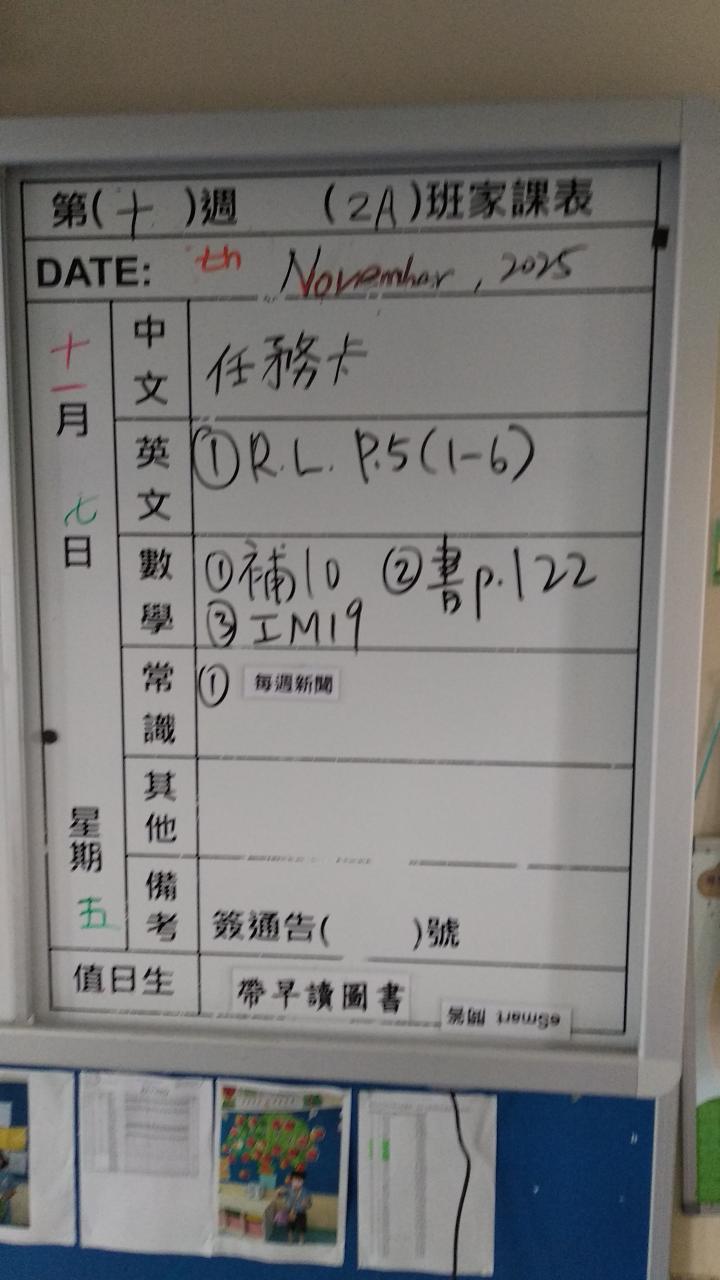 第(十)週 (2A)班家課表
DATE: th November, 2025
十一月七日 星期五
中文 任務卡
英文 ①R.L. P.5(1-6)
數學 ①補10 ②書p.122
③工M19
常識 ① 每週新聞
其他
備考 簽通告( )號
值日生 帶早讀圖書
eSmart 問答